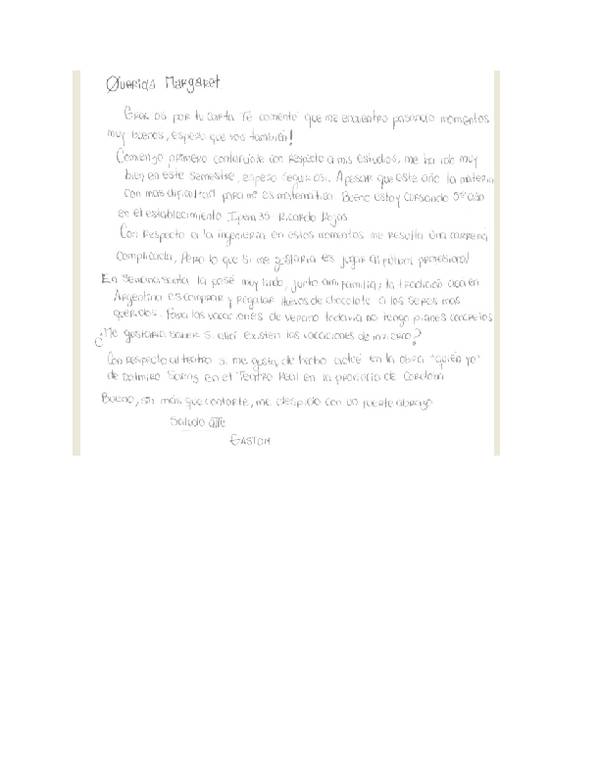 Querida Margaret
Gracias por tu carta. Te comento que me encuentro pasando momentos
muy buenos, espero que vos también!
Comienzo primero contandote con respecto a mis estudios, me ha ido muy
bien en este semestre, espero seguir asi. Apesar que este año la materia
con mas dificultad para mi es matemática. Bueno estoy cursando 5º año
en el establecimiento Ipem 35 Ricardo Rojas
Con respecto a la ingenieria en estos momentos me resulta una carrera
complicada, Pero lo que si me gustaria es jugar al futbol profesional
En Semana santa la pasé muy lindo, junto a mi familia; la tradición aca en
Argentina es comprar y regalar huevos de chocolate a los seres mas
queridos. Para las vacaciones de verano todavia no tengo planes concretos
¿Me gustaria saber si alli existen las vacaciones de invierno?
Con respecto al teatro si me gusta, de hecho actué en la obra "quién yo"
de Dalmiro Saenz en el Teatro Real en la provincia de Cordoba
Bueno, sin más que contarte, me despido con un fuerte abrazo
Saludo atte
Gaston